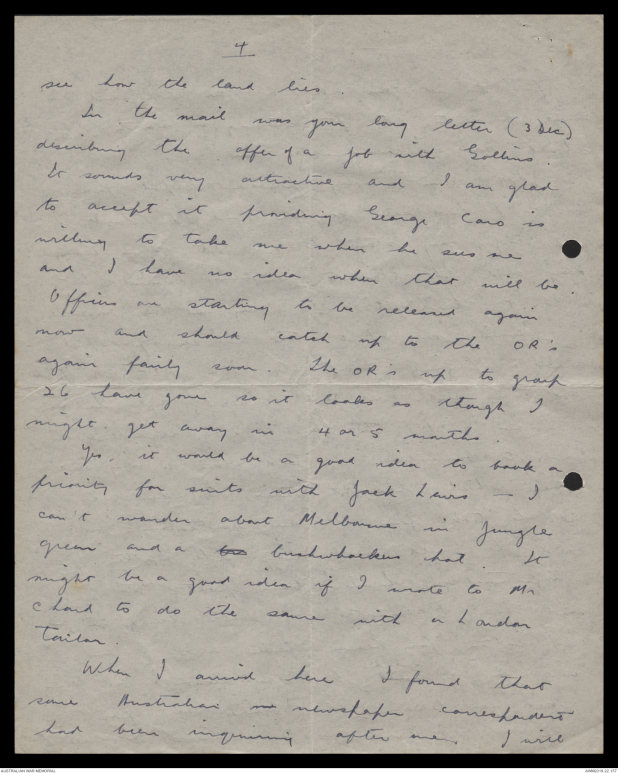 4
see how the land lies.
In the mail was your long letter (3 Dec)
describing the offer of a job with Gollins.
It sounds very attractive and I am glad
to accept it providing George Caro is
willing to take me when he sees me
and I have no idea when that will be.
Officers are starting to be released again
now and should catch up to the OR's
again fairly soon. The OR's up to group
26 have gone so it looks as though I
might get away in 4 or 5 months.
Yes, it would be a good idea to book a
priority for suits with Jack Lewis - I
can't wander about Melbourne in jungle
green and a bushwhackers hat. It
might be a good idea if I wrote to Mr
Chard to do the same with a London
Tailor.
When I arrived here I found that
some Australian newspaper correspondent
had been inquiring after me. I will
AUSTRALIAN WAR MEMORIAL